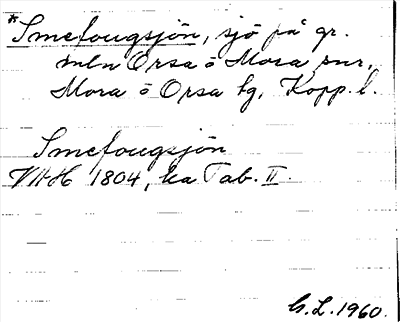 *Smefougsjön, sjö på gr.
mln Orsa o Mora snr,
Mora o Orsa tg, Kopp. l.
Smefougsjön
VAH 1804, ka Tab. II.
G.L. 1960.